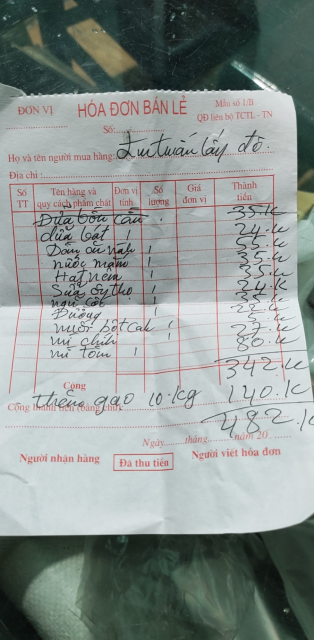 ĐƠN VỊ
HÓA ĐƠN BÁN LẺ
Mẫu số 1/B
QĐ liên bộ TCTL - TN
Số:
Họ và tên người mua hàng: tuấn lấy đồ.
Địa chỉ:
Số TT Tên hàng và quy cách phẩm chất Đơn vị tính Số lượng Giá đơn vị Thành tiền
bồn cầu 35.k
đũa bát 1 24.k
Dầu ăn 1 55.k
nước mắm 1 35.k
Hạt nêm 1 35.k
Sữa ông thọ 1 24.k
35
Đường 1
bột canh 1 27.k
mì chính 1 80.k
mì tôm 1
342.k
Cộng
thêm gạo 10.kg 140.k
Cộng thành tiền (bằng chữ):
482.k
Ngày tháng năm 20
Người nhận hàng
Đã thu tiền
Người viết hóa đơn